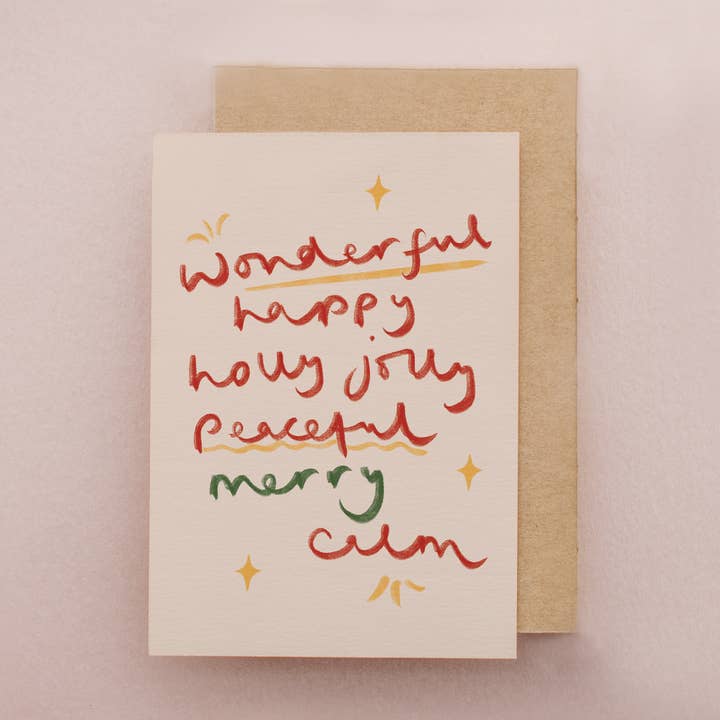 Wonderful
happy
holly jolly
Peaceful
merry
calm